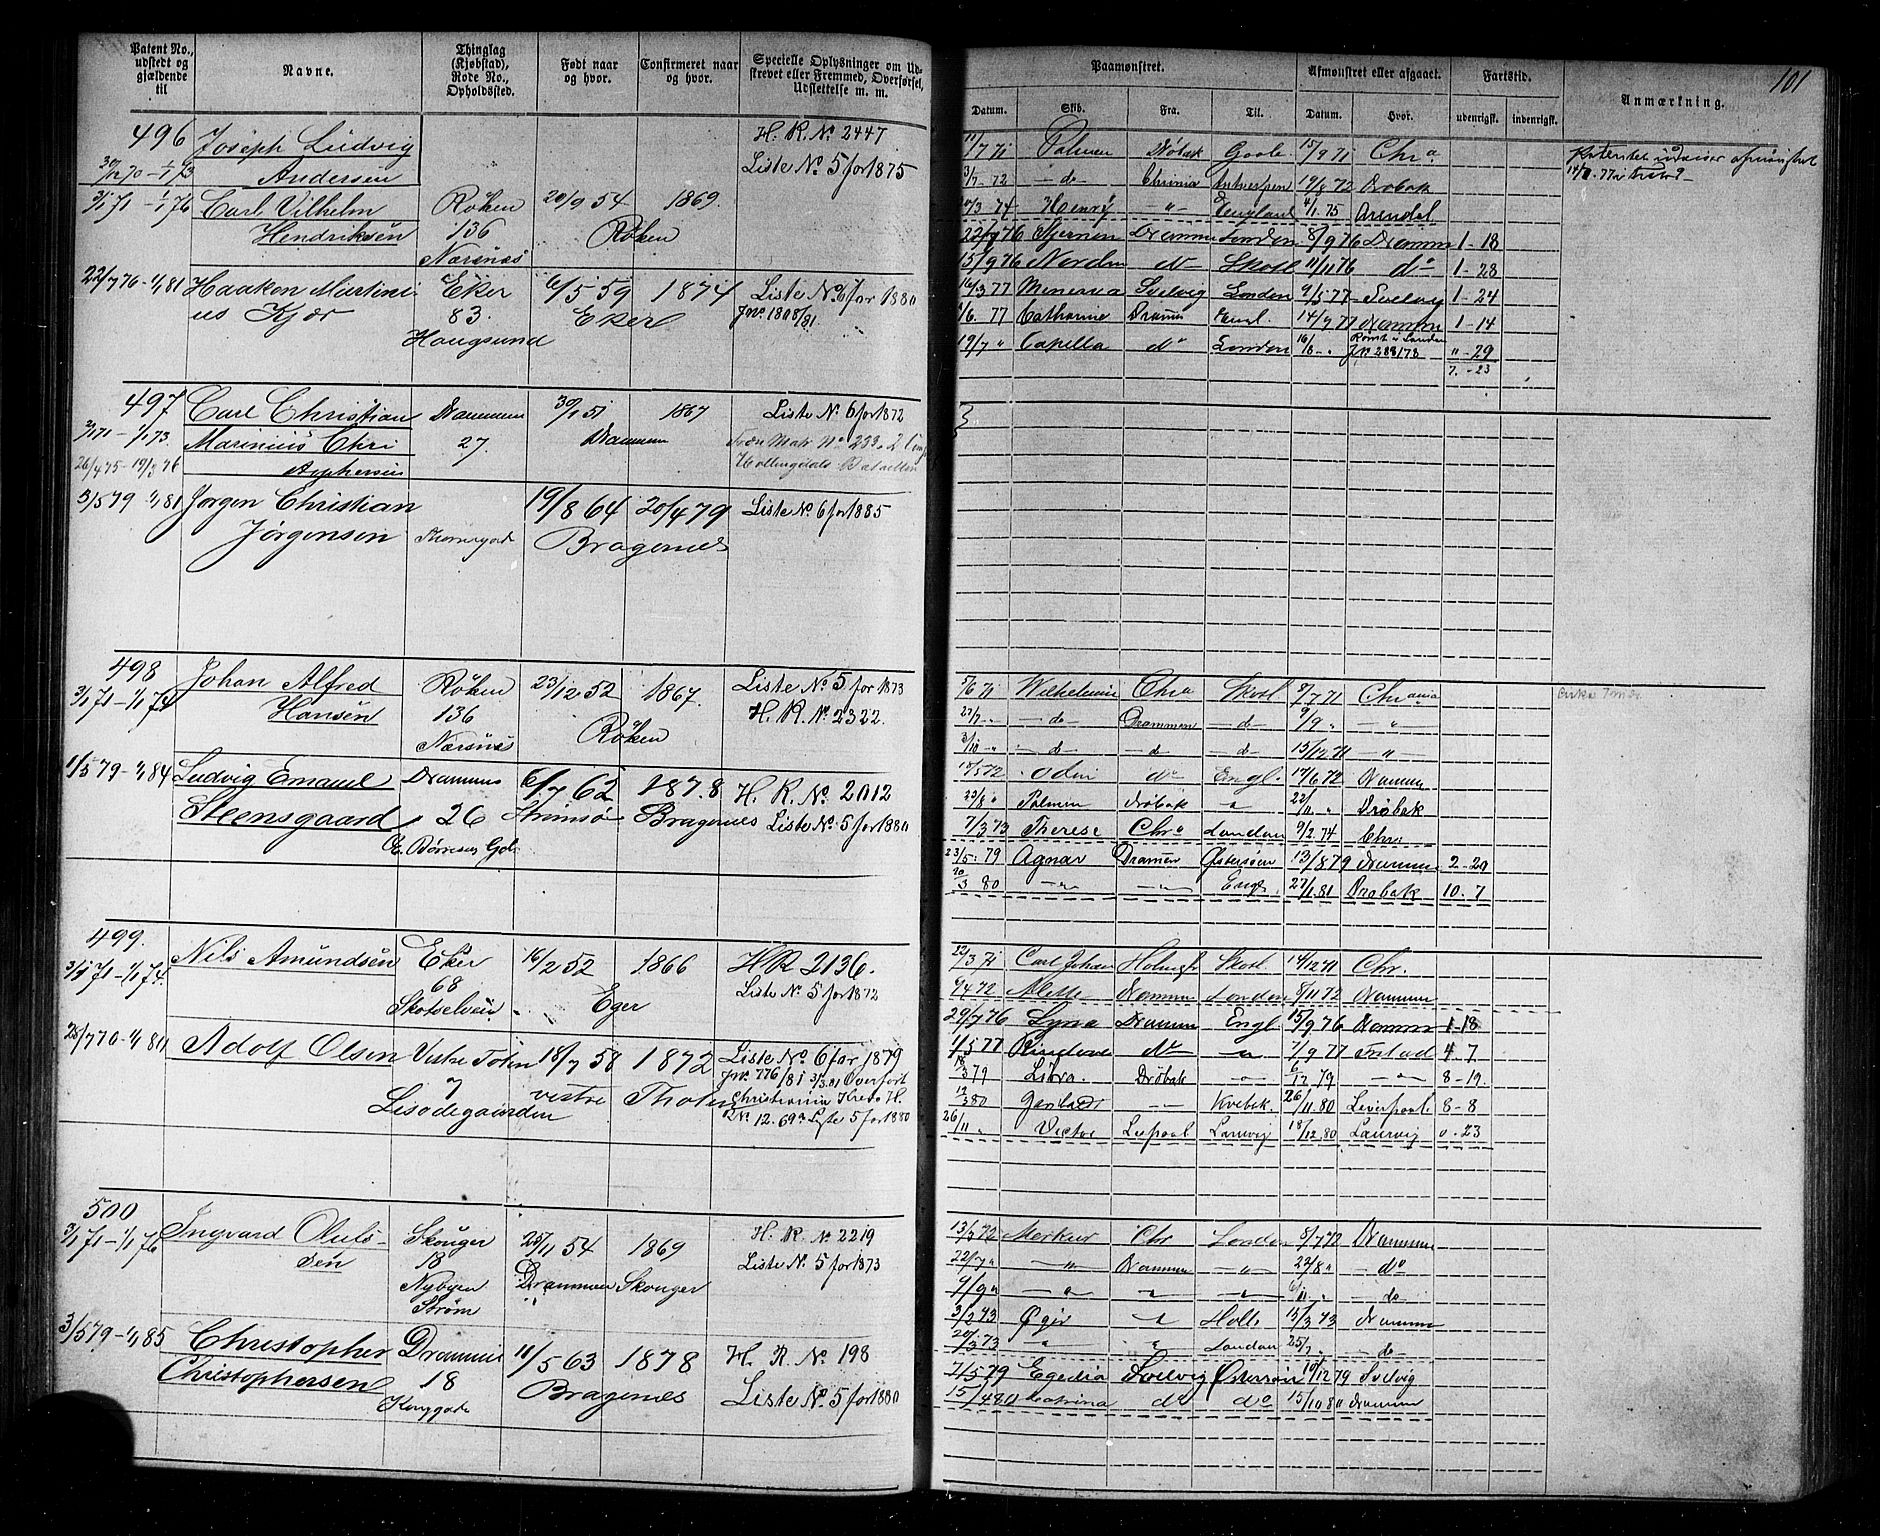 Patent No., udstedt og gjældende til
Navne.
Thinglag (Kjøbstad), Rode No., Opholdssted.
Født naar og hvor.
Confirmeret naar og hvor.
Specielle Oplysninger om Udstrevet eller Fremmed, Overførsel, Udslettelse m. m.
496 Joseph Ludvig H. R. No 2447
30/12 70 - 1/1 73 Andersen Liste No 5 for 1875
3/1 71 - 1/1 76 Carl Vilhelm Røken 20/9 54 1869.
Hendriksen 136 Røken
Nærsnæs
22/7 76 - 1/1 81 Haakon Martini- Eker 6/5 59 1874 Liste No 6 for 1880
us Kjær 83. Eker Jno 1808/81
Hougsund
497 Carl Christian Drammen 30/1 51 1867 Liste No 6 for 1872
2/1 71 - 1/1 73. Marinius Chri 27. Drammen
26/4 75 - 19/3 76
3/5 79 - 1/1 81 Jørgen Christian 19/8 64 20/4 79 Liste No 6 for 1885
Jørgensen Bragernes
498 Johan Alfred Røken 23/12 52 1867. Liste No 5 for 1873
3/1 71 - 1/1 74 Hansen 136 Røken H. R. No 2322.
Nærsnæs
1/5 79 - 1/1 84 Ludvig Emanuel Drammens 6/7 62 1878 H. R. No 2012
Steensgaard 26 Strømsø Bragernes Liste No 5 for 1880
499. Nils Amundsen Eker 16/2 52 1866 H R 2136.
3/1 71 - 1/1 74. 68 Eger Liste No 5 for 1872
Skotselven
25/7 70 - 1/1 80 Adolf Olsen Vestre Toten 18/7 58 1872 Liste No 6 for 1879
7 vestre Thoten Jno 776/81 3/3 81 Overført
Lisodegaarden Christiania Kreds H.
No 12. 69 Liste 5 for 1880
500 Ingvard Oluls- Skouger 25/11 54 1869 H. R. No 2219
3/1 71 - 1/1 76 sen 18 Drammen Skouger Liste No 5 for 1873
Nybyen
Strøm
3/5 79 - 1/1 85 Christopher Drammen 11/5 63 1878 H. R. No 198
Christophersen 18 Bragernes Liste No 5 for 1880
Konggade
101
Paamønstret. Afmønstret eller afgaaet. Fartstid. Anmærkning.
Datum. Skib. Fra. Til. Datum. Hvor. udenrigsk. indenrigsk.
11/7 71 Palmen Drøbak Goole 15/9 71 Chra
3/7 72 do Chrania Antwerpen 19/8 72 Drøbak
3 74 Henry " England 4/1 75 Arendal
22/7 76 Stjernen Drammen London 8/9 76 Dramm 1-18
15/9 76 Norden do Skotl 11/11 76 do 1-28
16/3 77 Minerva Svelvig London 9/5 77 Svelvig 1-24
1/6. 77 Cathrine Dramn Engl. 14/7 77 Dramm 1-14
19/7 " Capella do London 16/8 - " Rømt i London Jno 2881/78 " - 29
7. - 23
5/6 71 Wilhelmine Chra Skotl 9/7 71 Chrania
27/7 " do Drammen do 9/9 " "
3/10 " do do do 13/12 71 "
17/5 72 Odin do Engl. 17/6 72 Drammen
23/8 " Palmen Drøbak " 22/11 " Drøbak
7/3 73 Therese Chra London 9/2 74 Chr
23/5. 79 Agnar Dramen Østersøen 13/8 79 Drammen 2-20
20/3 80 " " Engl. 27/1 81 Drøbak 10. 7
22/3 71 Carl Johan Holmest Skotl. 14/12 71 Chr.
9/4 72 Mette Drammen London 8/11 72 Drammen
29/7 76 Lyna Drammen Engl 15/9 76 Dramm 1-18
1/5 77 do " 7/9 77 4-7
3 79 Libra. Drøbak " 6/12 79 " 8-19.
12/3 80 Garibaldi Kvebek. 26/11 80 Liverpool 8-8
26/11 " Victor Lrpool Laurvig 18/12 80 Laurvig 0-23
13/5 72 Merkur Chr London 5/7 72 Drammen
22/7 " " Drammen " 22/8 " do
9/9 " " " " 6/11 " do
3/2 73 Øgir " Holl. 13/3 73 Drammen
20/3 73 " " London 25/7 " do
7/5 79 Egedia Svelvig Østersøen 10/12 79 Svelvig
15/4 80 Catrina do do 15/10 80 Drammen